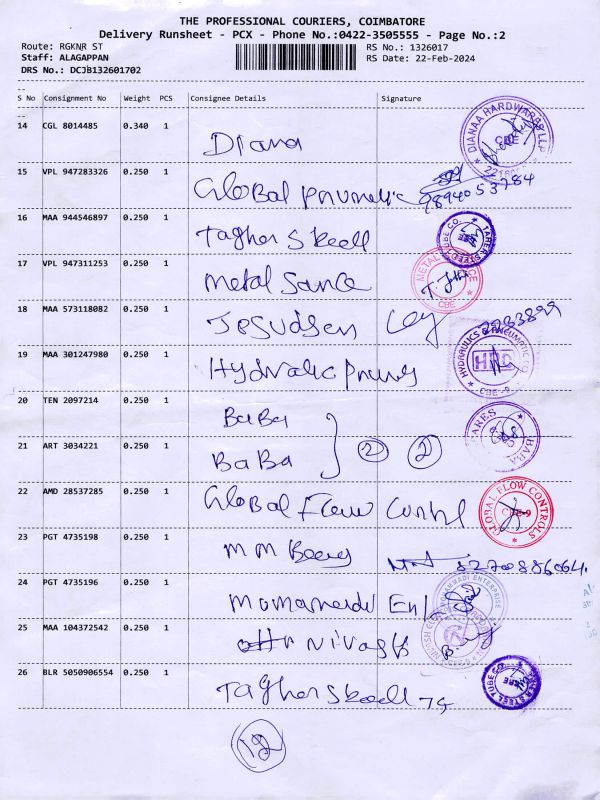 THE PROFESSIONAL COURIERS, COIMBATORE
Delivery Runsheet - PCX - Phone No.:0422-3505555 - Page No.:2
Route: RGKNR ST RS No.: 1326017
Staff: ALAGAPPAN RS Date: 22-Feb-2024
DRS No.: DCJB132601702
S No Consignment No Weight PCS Consignee Details Signature
14 CGL 8014485 0.340 1 Diana DIANAA HARDWARES LLP CBE
15 VPL 947283326 0.250 1 Global pnumetic 9894053784
16 MAA 944546897 0.250 1 Tagher Steell TAHER STEEL TUBE CO. CBE
17 VPL 947311253 0.250 1 Metal Sance METAL CBE
18 MAA 573118082 0.250 1 Jesudsen 2233899
19 MAA 301247980 0.250 1 Hydralic pneus HYDRAULICS & PNEUMATIC CO HPC CBE-9
20 TEN 2097214 0.250 1 BaBa
21 ART 3034221 0.250 1 BaBa 2 2 BABA
22 AMD 28537285 0.250 1 Global Flow Contrl GLOBAL FLOW CONTROLS CBE-9
23 PGT 4735198 0.250 1 MM Boeey 8270886064.
24 PGT 4735196 0.250 1 Momamerdu Ent ENTERPRISE
25 MAA 104372542 0.250 1 Nivash
26 BLR 5050906554 0.250 1 Tagher Steell TAHER STEEL TUBE CO. CBE
12